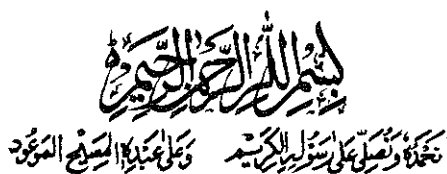 بِسْمِ اللهِ الرَّحْمٰنِ الرَّحِيْمِ
نَحْمَدُهٗ وَنُصَلِّیْ عَلٰی رَسُوْلِهِ الْكَرِيْمِ وَعَلٰی عَبْدِهِ الْمَسِيْحِ الْمَوْعُوْدِ